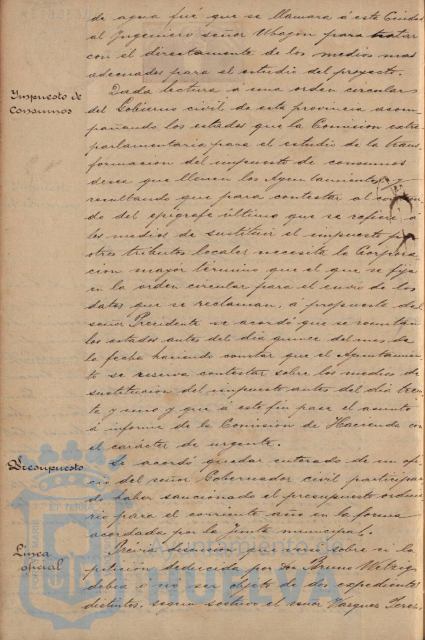 de agua fué que se llamara á esta Ciudad
al Ingeniero señor Albajon para tratar
con el directamente de los medios mas
adecuados para el estudio del proyecto.
Impuesto de
Consumos
Dada lectura á una orden circular
del Gobierno civil de esta provincia acom-
pañando los estados que la Comision extra-
parlamentaria para el estudio de la trans-
formacion del impuesto de consumos
desea que llenen los Ayuntamientos, y
resultando que para contestar al conteni-
do del epígrafe último que se refiere á
los medios de sustituir el impuesto por
otros tributos locales necesita la Corpora-
cion mayor término que el que se fija
en la orden circular para el envio de los
datos que se reclaman, á propuesta del
señor Presidente se acordó que se remitan
los estados antes del dia quince del mes de
la fecha haciendo constar que el Ayuntamien-
to se reserva contestar sobre los medios de
sustitucion del impuesto antes del dia trein-
ta y uno y que á este fin pase el asunto
á informe de la Comision de Hacienda con
el carácter de urgente.
Presupuesto
Se acordó quedar enterado de un ofi-
cio del señor Gobernador civil participan-
do haber sancionado el presupuesto ordina-
rio para el corriente año en la forma
acordada por la Junta municipal.
Linea
oficial
Previa discusion para sobre si la
peticion deducida por Dn Bruno
debia ó no ser objeto de dos expedientes
distintos, segun sostuvo el señor Vazquez
Ayuntamiento de
HUELVA